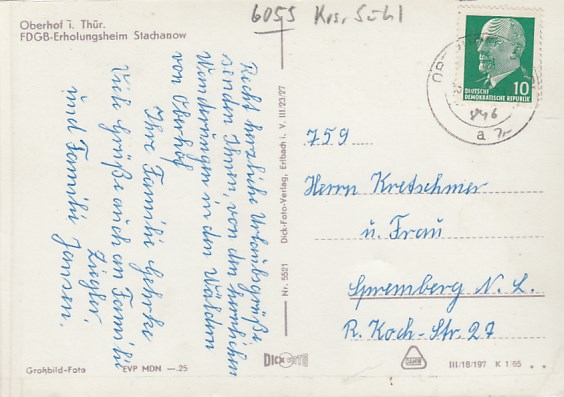 Oberhof i. Thür.
FDGB-Erholungsheim Stachanow
6055 Krs. Suhl
Recht herzliche Urlaubsgrüße
senden Ihnen, von den herrlichen
Wanderungen in den Wäldern
von Oberhof
Ihre Familie Gehrke
Viele Grüße auch an Familie
Ziegler
und Familie Jensen.
Großbild-Foto
EVP MDN —.25
Nr. 5521 Dick-Foto-Verlag, Erlbach i. V. III/23/27
DICK FOTO
10
DEUTSCHE
DEMOKRATISCHE REPUBLIK
a
759
Herrn Kretschmer
u. Frau
Spremberg N. L.
R. Koch-Str. 27
III/18/197 K 1/65